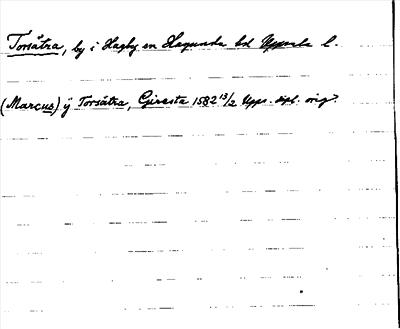 Torsåtra, by i Hagby sn Hagunda hd Uppsala l.
(Marcus) ÿ Torsåtra, Giresta 1582 13/2 Upps. dipl. orig?